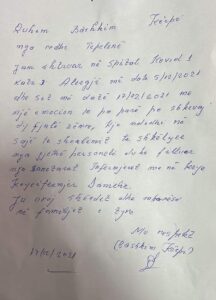 Quhem Bashkim Çërpo
nga rrethi Tepelenë
Jam shtruar në spital Kovid 1
Kati 2 Alergjë më datë 5/12/2021
dhe sot më datë 17/12/2021 me
një emocion te pa parë po shkruaj
dy fjalë zëmre, kjo
sajë te shëndetit te shkëlqyer
nga gjithë personeli duke filluar
nga Sanitaret Infermjeret me në krye
Kryeinfermjer
Ju uroj shëndet dhe mbarësi
në familjet e tyre
Me respekt
(Bashkim Çërpo)
17/12/2021